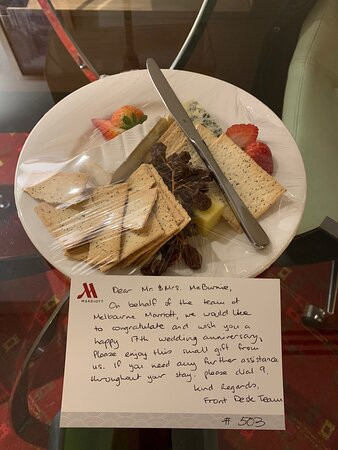 MARRIOTT
Dear Mr & Mrs. McBurnie,
On behalf of the team at
Melbourne Marriott, we would like
to congratulate and wish you a
happy 17th wedding anniversary,
Please enjoy this small gift from
us. If you need any further assistance
throughout your stay, please dial 9.
Kind Regards,
Front Desk Team
# 503